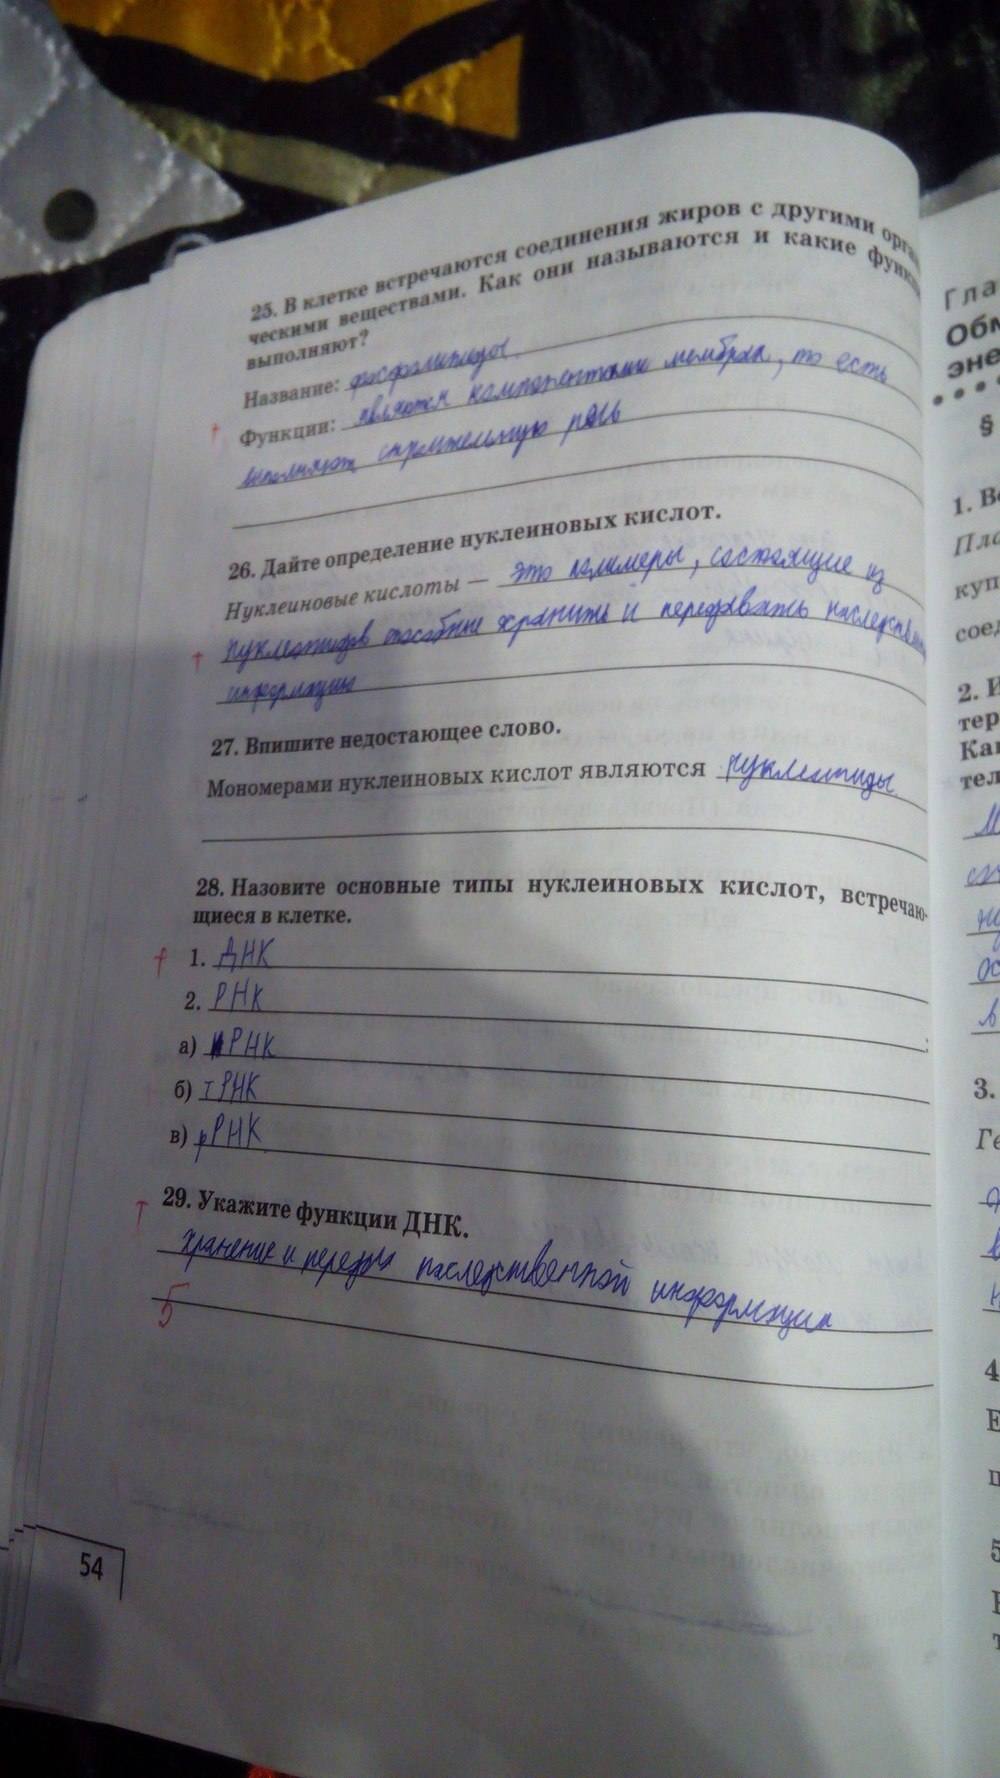 25. В клетке встречаются соединения жиров с другими орга
ческими веществами. Как они называются и какие функц
выполняют?
Название: фосфолипиды.
Функции: являются компонентами мембран, то есть
выполняют строительную роль
26. Дайте определение нуклеиновых кислот.
Нуклеиновые кислоты — это полимеры, состоящие из
нуклеотидов способные хранить и передавать наследствен
информацию
27. Впишите недостающее слово.
Мономерами нуклеиновых кислот являются нуклеотиды.
28. Назовите основные типы нуклеиновых кислот, встречаю-
щиеся в клетке.
1. ДНК
2. РНК :
а) иРНК
б) тРНК
в) рРНК
29. Укажите функции ДНК.
хранение и передача наследственной информации
5
54
Гла
Обм
эне
§
1. Во
Пла
куп
соед
2. И
тер
Как
тел
3.
Ге
4
Е
п
5